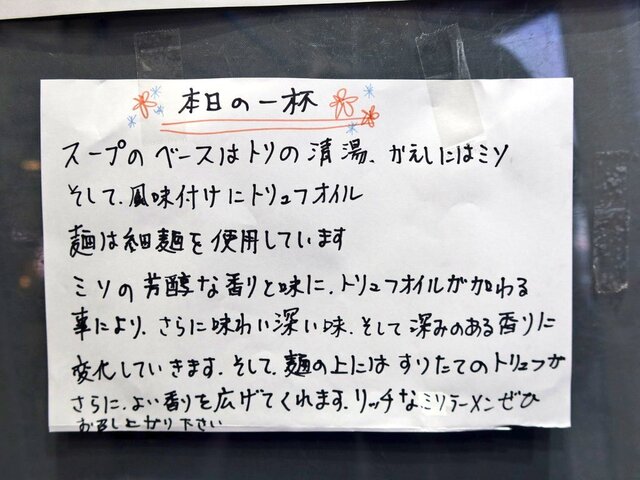 本日の一杯
スープのベースはトリの清湯、かえしにはミソ
そして、風味付けにトリュフオイル
麺は細麺を使用しています
ミソの芳醇な香りと味に、トリュフオイルが加わる
事により、さらに味わい深い味、そして深みのある香りに
変化していきます。そして、麺の上にはすりたてのトリュフが
さらに、よい香りを広げてくれます。リッチなミソラーメンぜひ
お召し上がり下さい